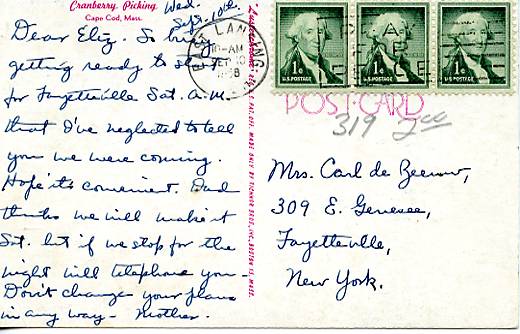 Cranberry Picking
Cape Cod, Mass.
Wed.
Sept. 10th.
Dear Eliz. So busy
getting ready to start
for Fayetteville Sat. A.M.
that I've neglected to tell
you we were coming.
Hope it's convenient. Dad
thinks we will make it
Sat. but if we stop for the
night will telephone you -
Don't change your plans
in any way - Mother.
LANSING
10-AM
SEP 10
1958
1¢
U.S. POSTAGE
1¢
U.S. POSTAGE
1¢
U.S. POSTAGE
POST CARD
319 200
Mrs. Carl de Zeeuw,
309 E. Genesee,
Fayetteville,
New York.